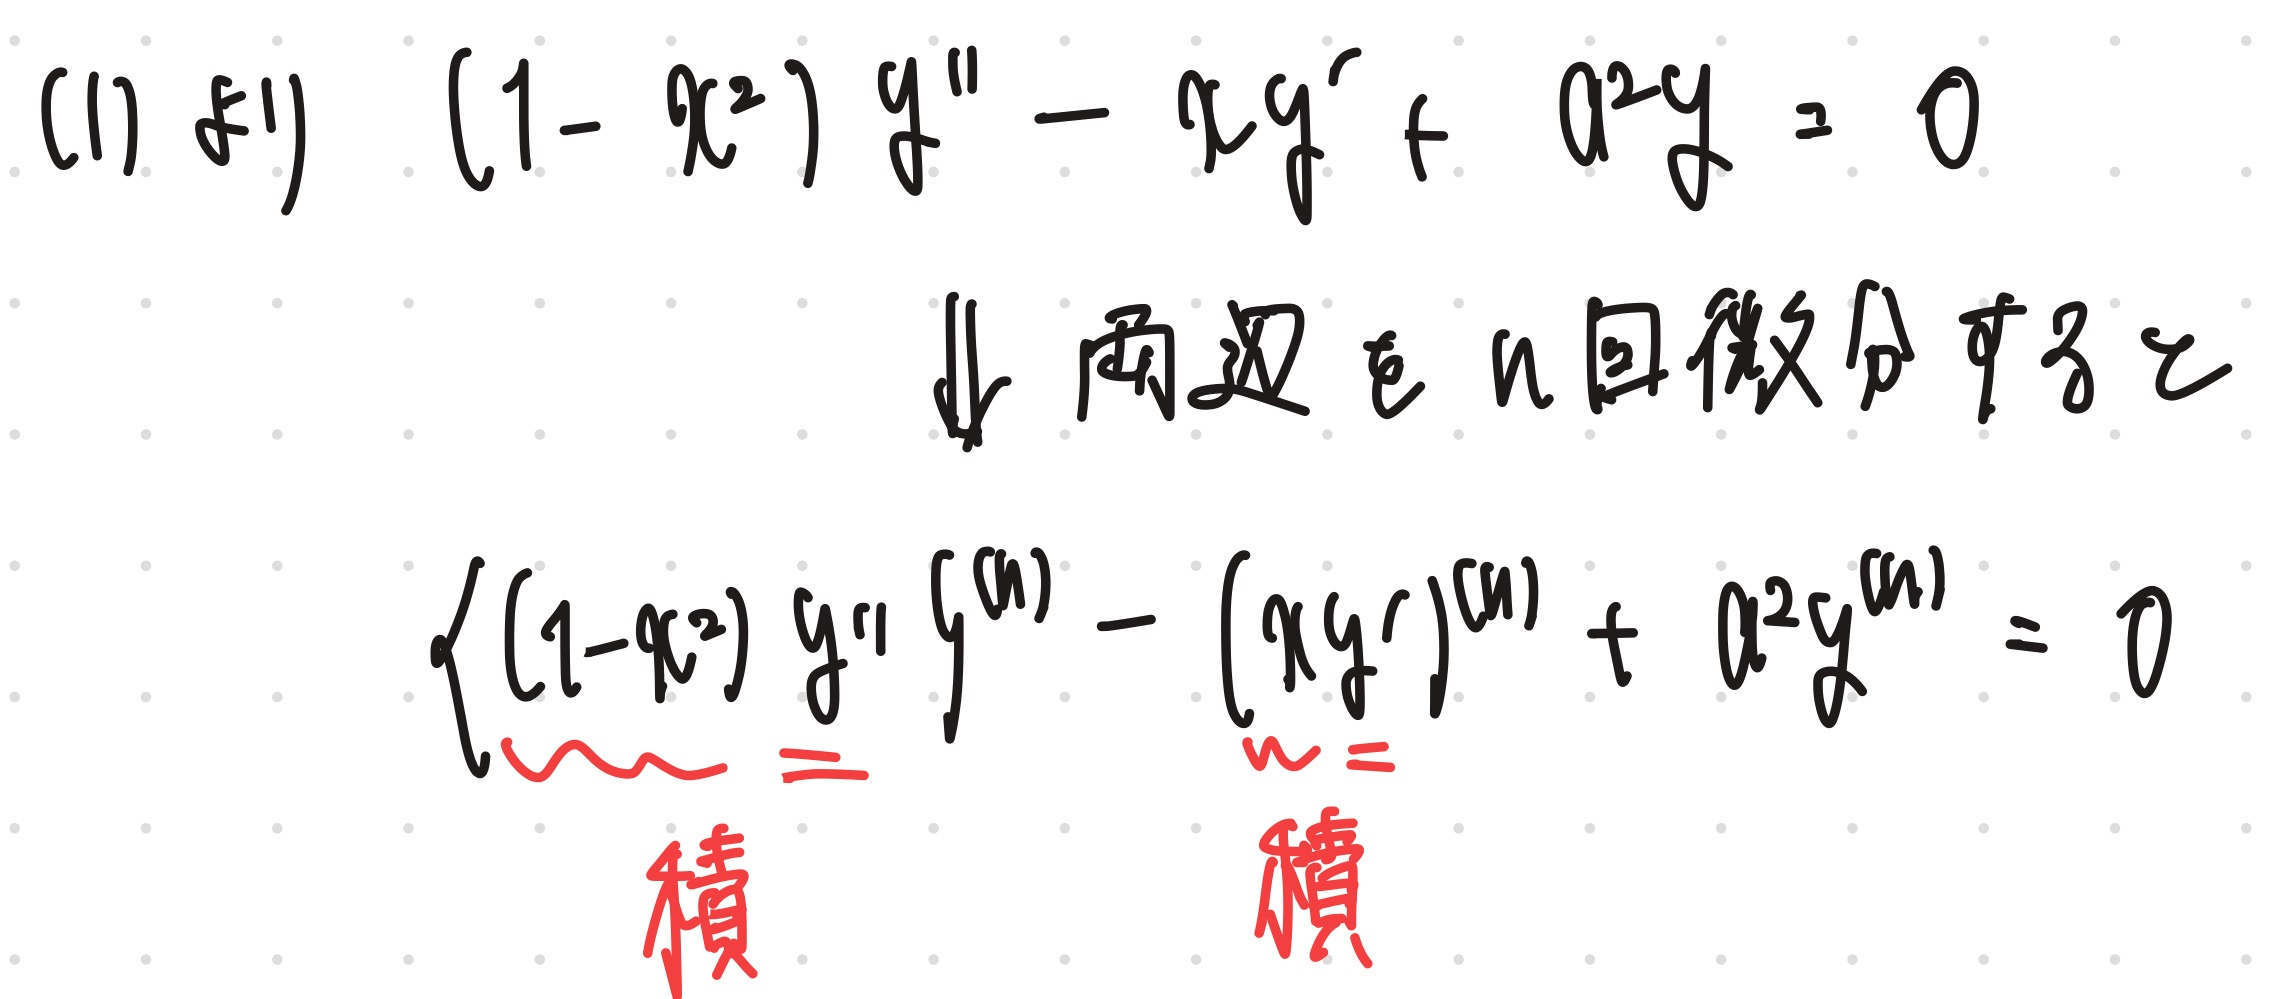 (1)より (1-x²)y'' - xy' + a²y = 0
⇓ 両辺をn回微分すると
{(1-x²)y''}⁽ⁿ⁾ - (xy')⁽ⁿ⁾ + a²y⁽ⁿ⁾ = 0
積 積